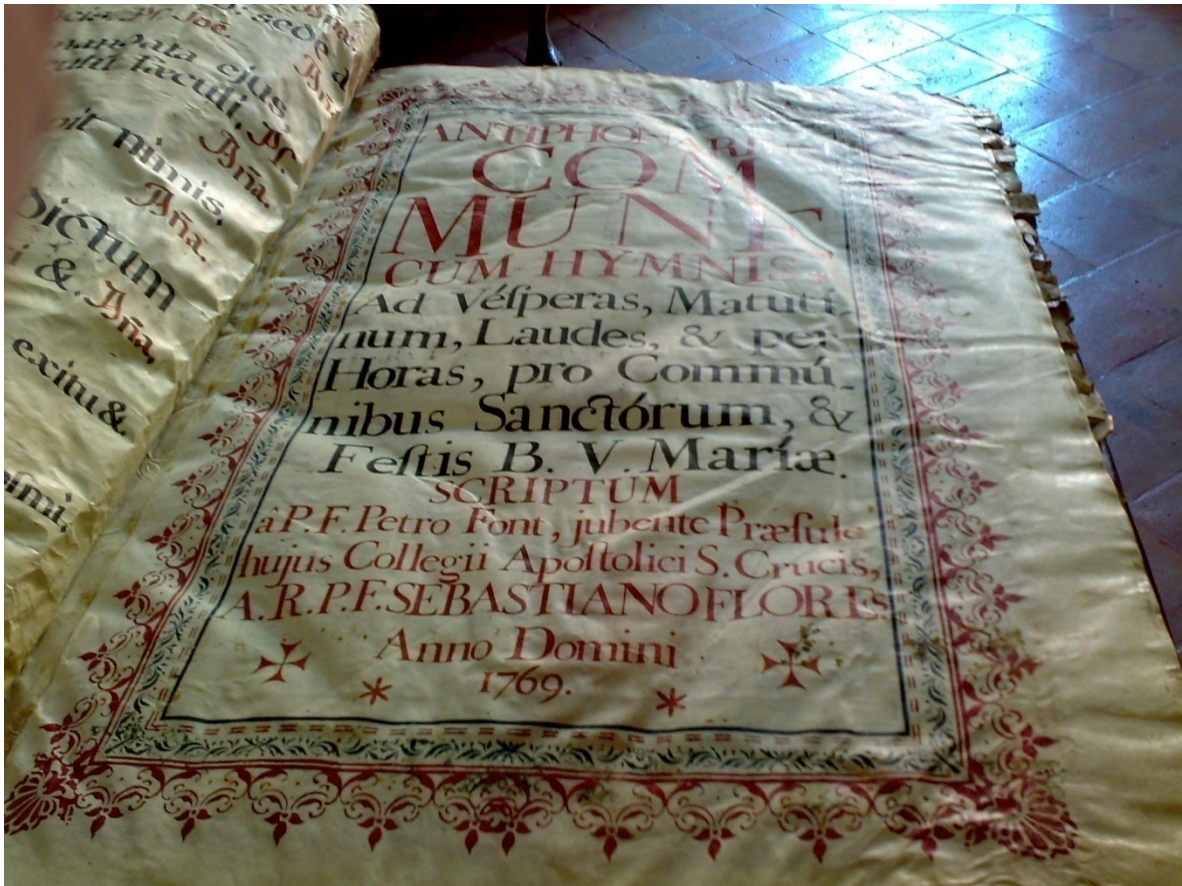 mandata ejus
nimis,
Aña.
Dictum
& Aña,
exitu &
ANTIPHON
COM
MUNE
CUM HYMNIS
Ad Vésperas, Matuti-
num, Laudes, & per
Horas, pro Commú-
nibus Sanctórum, &
Festis B. V. Maríæ.
SCRIPTUM
à P. F. Petro Font, jubente Præsule
hujus Collegii Apostolici S. Crucis,
A. R. P. F. SEBASTIANO FLORES
Anno Domini
1769.